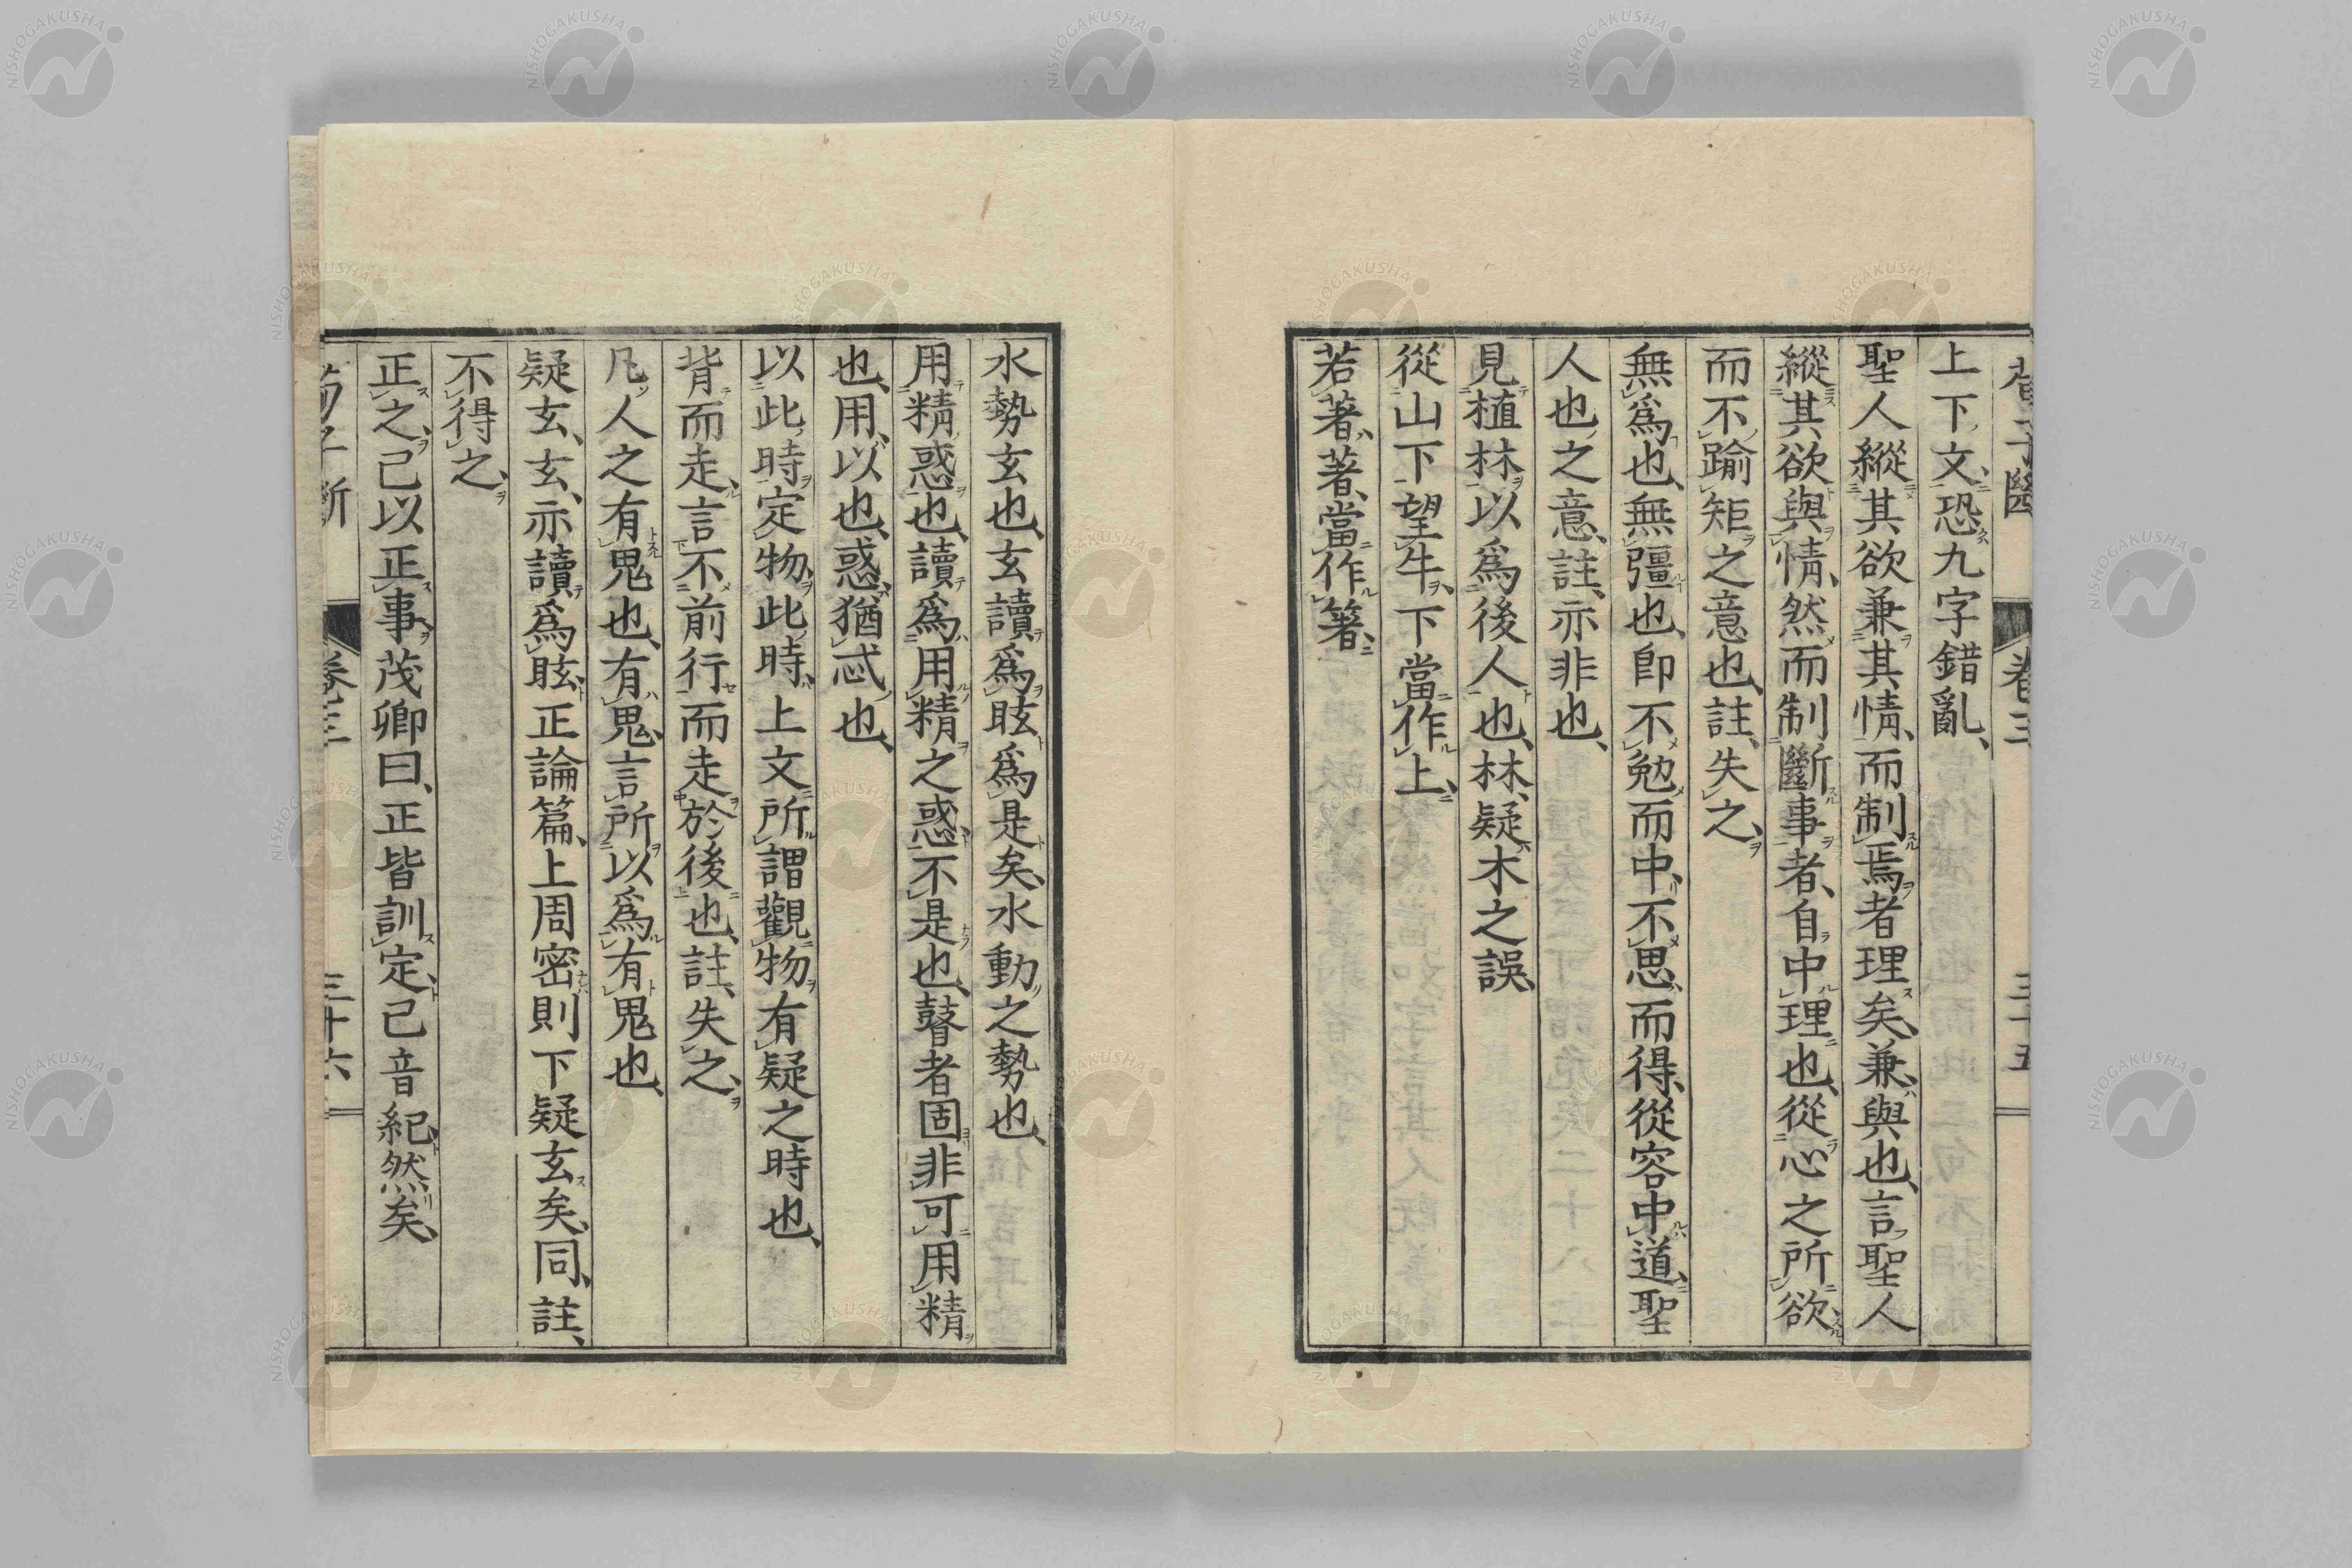 荀子斷 卷三 三十五
上下文、恐九字錯亂、
聖人縱其欲兼其情、而制焉者理矣、兼、與也、言聖人
縱其欲與情、然而制斷事者、自中理也、從心之所欲
而不踰矩之意也、註、失之、
無爲也、無彊也、卽不勉而中、不思而得、從容中道、聖
人也之意、註、亦非也、
見植林以爲後人也、林、疑木之誤、
從山下望牛、下當作上、
若著、著、當作箸、
水勢玄也、玄讀爲眩、爲是矣、水動之勢也、
用精惑也、讀爲用精之惑、不是也、瞽者固非可用精
也、用、以也、惑、猶忒也、
以此時定物、此時、上文所謂觀物有疑之時也、
背而走、言不前行而走於後也、註、失之、
凡人之有鬼也、有鬼、言所以爲有鬼也、
疑玄、玄、亦讀爲眩、正論篇、上周密則下疑玄矣、同、註、
不得之、
正之、己以正事、茂卿曰、正皆訓定、己音紀、然矣、
荀子斷 卷三 三十六